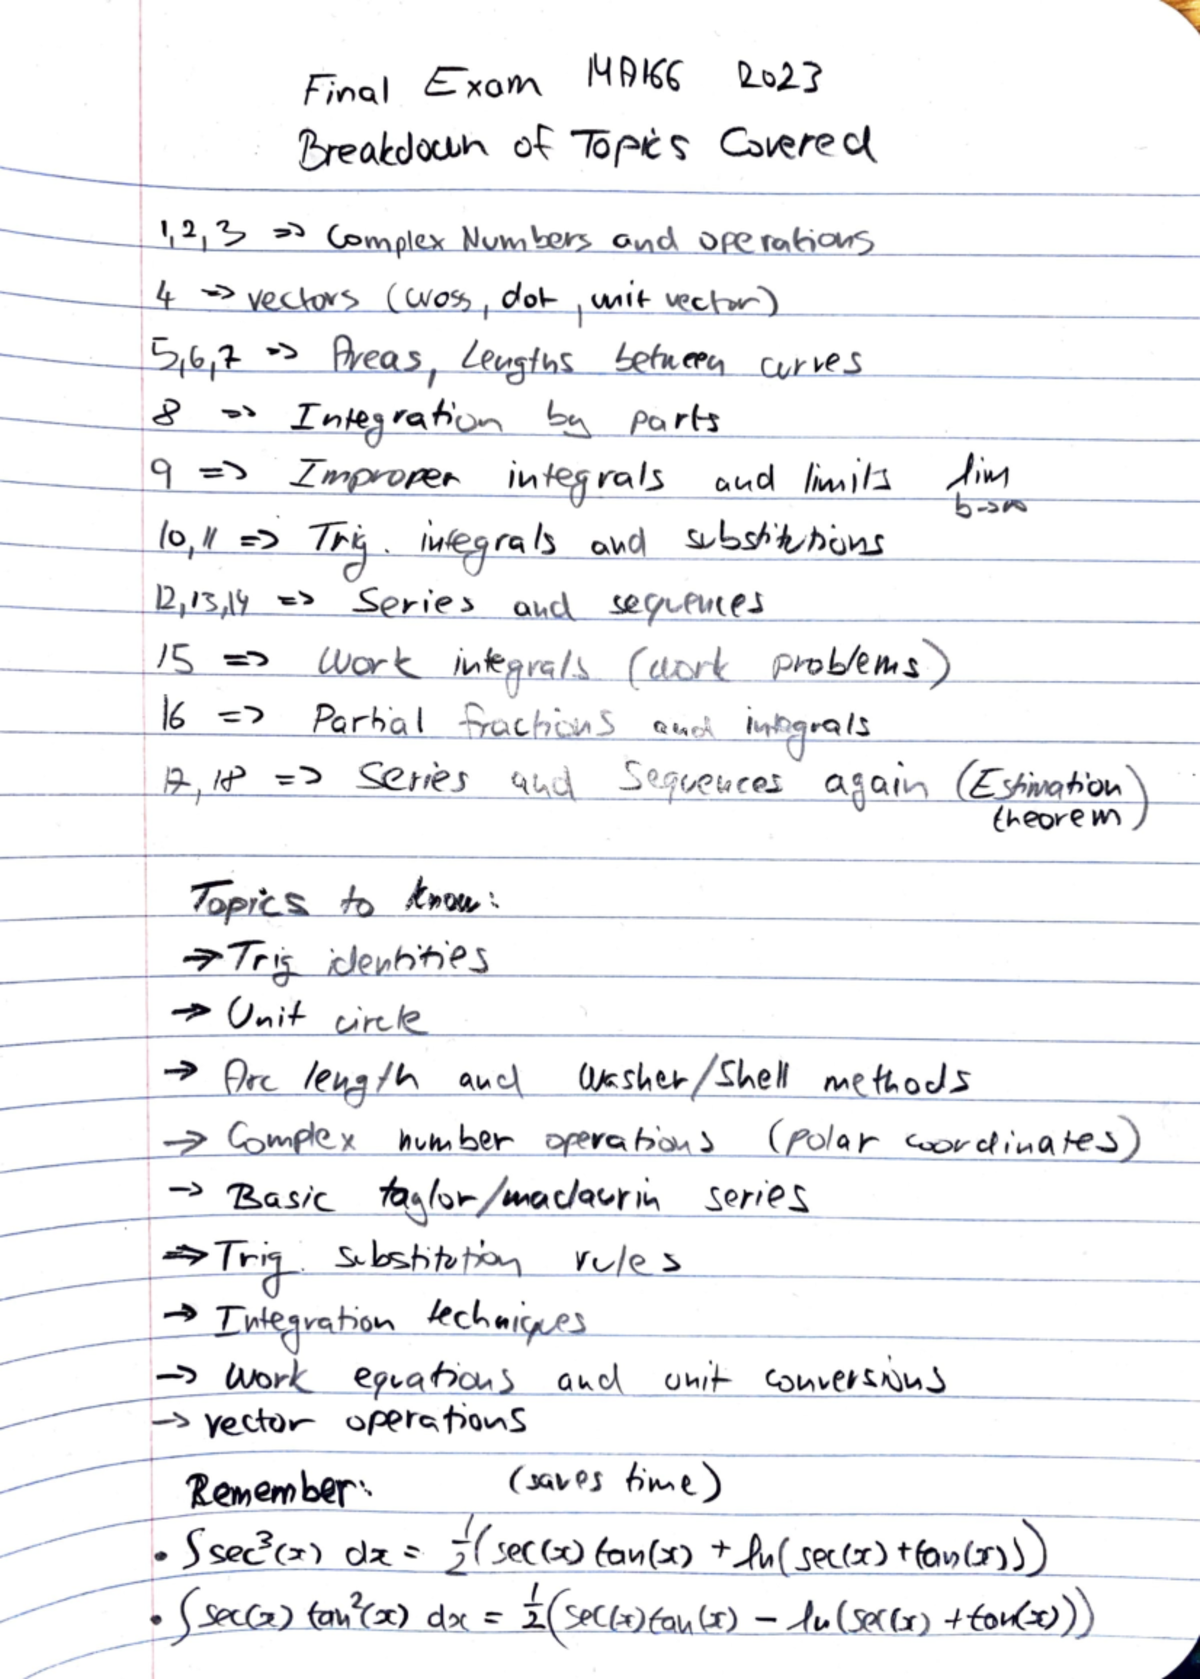 Final Exam MA166 2023
Breakdown of Topics Covered
1,2,3 => Complex Numbers and operations
4 => vectors (cross, dot, unit vector)
5,6,7 => Areas, Lengths between curves
8 => Integration by parts
9 => Improper integrals and limits lim b→∞
10,11 => Trig. integrals and substitutions
12,13,14 => Series and sequences
15 => Work integrals (work problems)
16 => Partial fractions and integrals
17,18 => Series and Sequences again (Estimation theorem)
Topics to know:
→ Trig identities
→ Unit circle
→ Arc length and Washer/Shell methods
→ Complex number operations (polar coordinates)
→ Basic taylor/maclaurin series
⇒ Trig. substitution rules
→ Integration techniques
→ Work equations and unit conversions
→ vector operations
Remember: (saves time)
• ∫sec³(x) dx = ½(sec(x) tan(x) + ln(sec(x)+tan(x)))
• ∫sec(x) tan²(x) dx = ½(sec(x)tan(x) − ln(sec(x)+tan(x)))